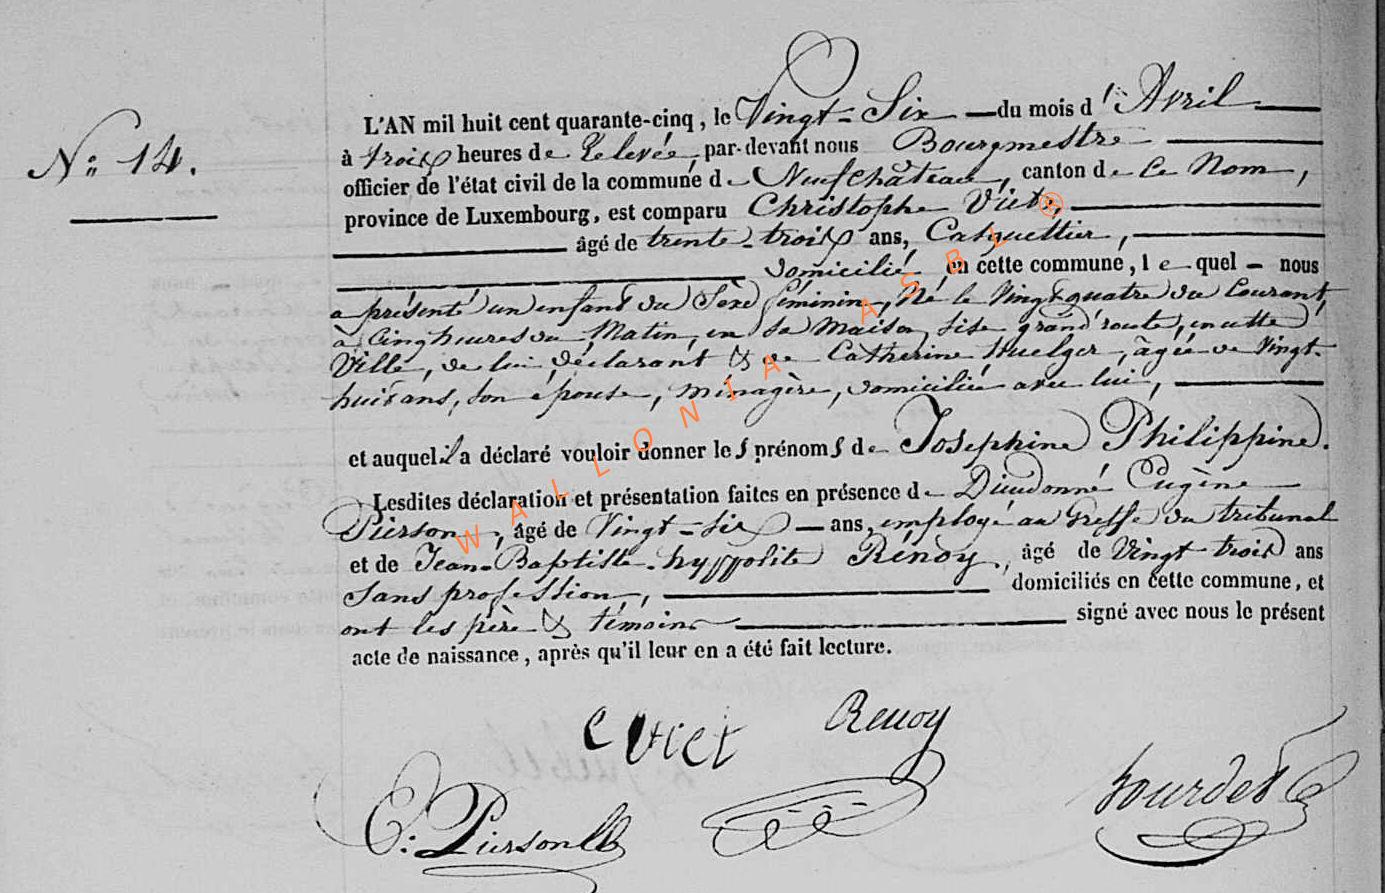 N.o 14.
L'AN mil huit cent quarante-cinq, le Vingt-Six — du mois d'Avril
à trois heures de Relevée, par-devant nous Bourgmestre
officier de l'état civil de la commune de Neufchâteau, canton de Ce Nom,
province de Luxembourg, est comparu Christophe Viet,
âgé de trente-trois ans, Casquettier,
domicilié en cette commune, lequel nous
a présenté un enfant du Sexe féminin, Né le Vingt quatre du Courant,
à Cinq heures du Matin, en sa Maison, sise grand'route, en cette
Ville, de lui, déclarant & de Catherine Huelger, âgée de Vingt-
huit ans, son épouse, ménagère, domiciliée avec lui,
et auquel il a déclaré vouloir donner les prénoms de Josephine Philippine.
Lesdites déclaration et présentation faites en présence de Dieudonné Eugène
Pierson, âgé de Vingt-six — ans, employé au Greffe du tribunal
et de Jean-Baptiste-hyppolite Rénoy, âgé de Vingt trois ans
Sans profession, domiciliés en cette commune, et
ont les père & témoins signé avec nous le présent
acte de naissance, après qu'il leur en a été fait lecture.
C Viet Renoy
E: Pierson Bourdet
WALLONIA ASBL ®